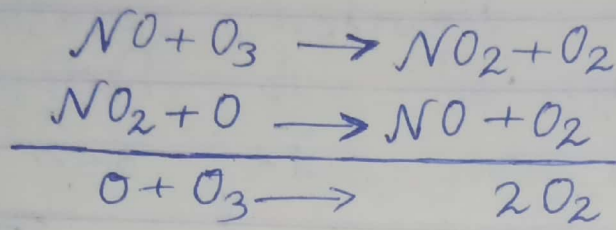 NO + O₃ → NO₂ + O₂
NO₂ + O → NO + O₂
O + O₃ → 2 O₂